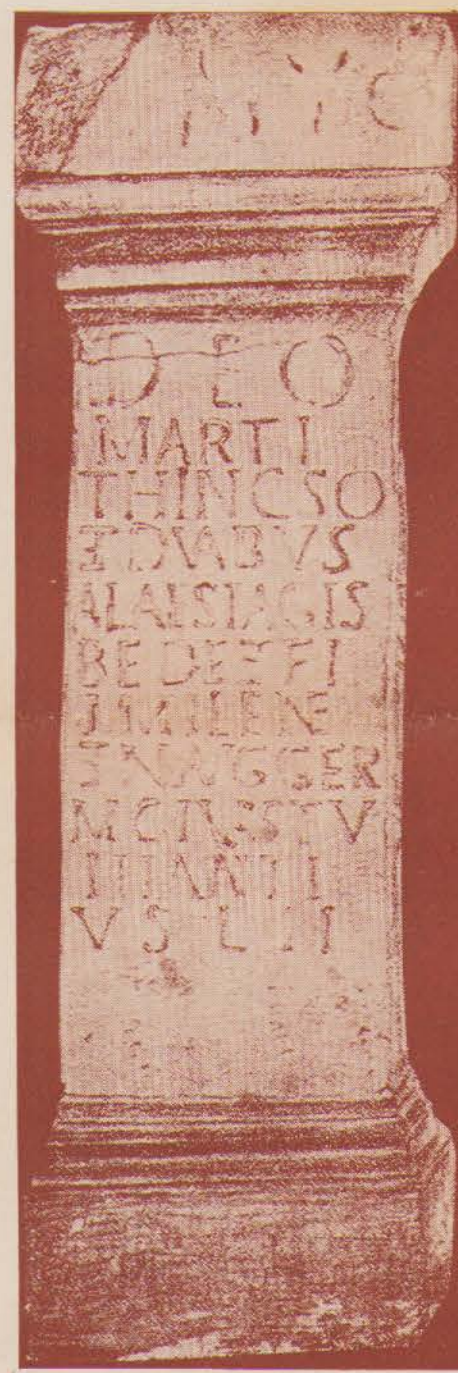 DEO
MARTI
THINCSO
ET DVABVS
ALAESIAGIS
BEDE ET FI
MILENE
ET N AVG GER
M CIVES TV
IHANTI
VSLM